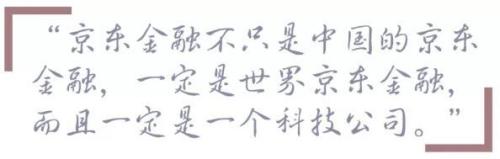 “京东金融不只是中国的京东
金融，一定是世界京东金融，
而且一定是一个科技公司。”